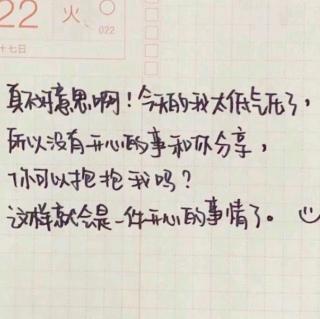 22 火
022
十七日
真不好意思啊！今天的我太低气压了，
所以没有开心的事和你分享，
你可以抱抱我吗？
这样就会是一件开心的事情了。